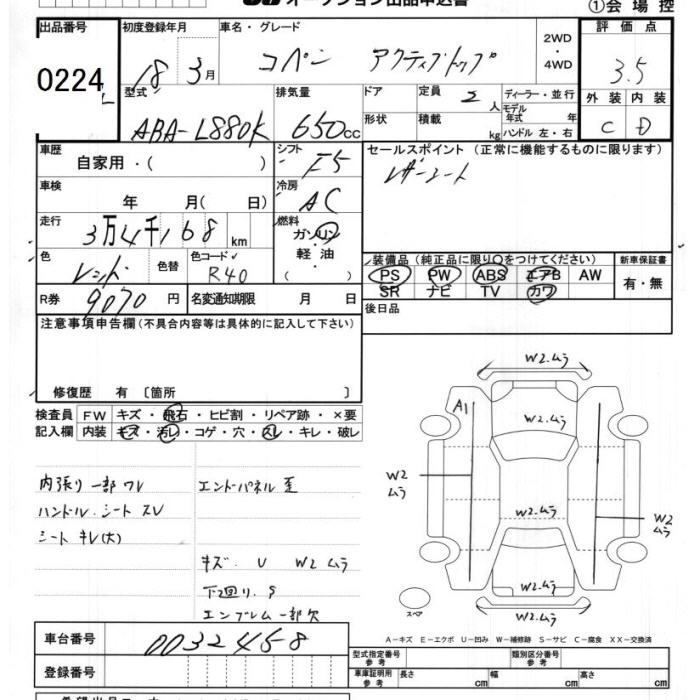 オークション出品申込書
①会場控
出品番号
0224
初度登録年月
18年 3月
車名・グレード
コペン アクティブトップ
2WD
・
4WD
評価点
3.5
外装 内装
C D
型式
ABA-L880K
排気量
650cc
ドア
形状
定員 2人
積載 kg
ディーラー・並行
モデル年式 年
ハンドル 左・右
車歴
自家用・( )
シフト
F5
セールスポイント (正常に機能するものに限ります)
レザーシート
車検
年 月( 日)
冷房
AC
走行
3万4千168km
燃料
ガソリン
軽油
( )
色
レッド
色替
色コード
R40
装備品(純正品に限り〇をつけてください)
PS PW ABS エアB AW
SR ナビ TV カワ
新車保証書
有・無
R券 9070円
名変通知期限 月 日
後日品
注意事項申告欄(不具合内容等は具体的に記入して下さい)
修復歴 有 〔箇所 〕
検査員記入欄
FW キズ・飛石・ヒビ割・リペア跡・×要
内装 キズ・汚レ・コゲ・穴・スレ・キレ・破レ
内張り一部ワレ
ハンドル.シート スレ
シート キレ(大)
エンドパネル 歪
キズ. U W2 ムラ
下廻り. S
エンブレム一部欠
W2.ムラ
A1
W2.ムラ
W2 ムラ
W2.ムラ
W2 ムラ
W2.ムラ
W2.ムラ
スペア
A-キズ E-エクボ U-凹み W-補修跡 S-サビ C-腐食 XX-交換済
車台番号 0032458
登録番号
型式指定番号 参考
類別区分番号 参考
車庫証明用 参考 長さ cm 幅 cm 高さ cm